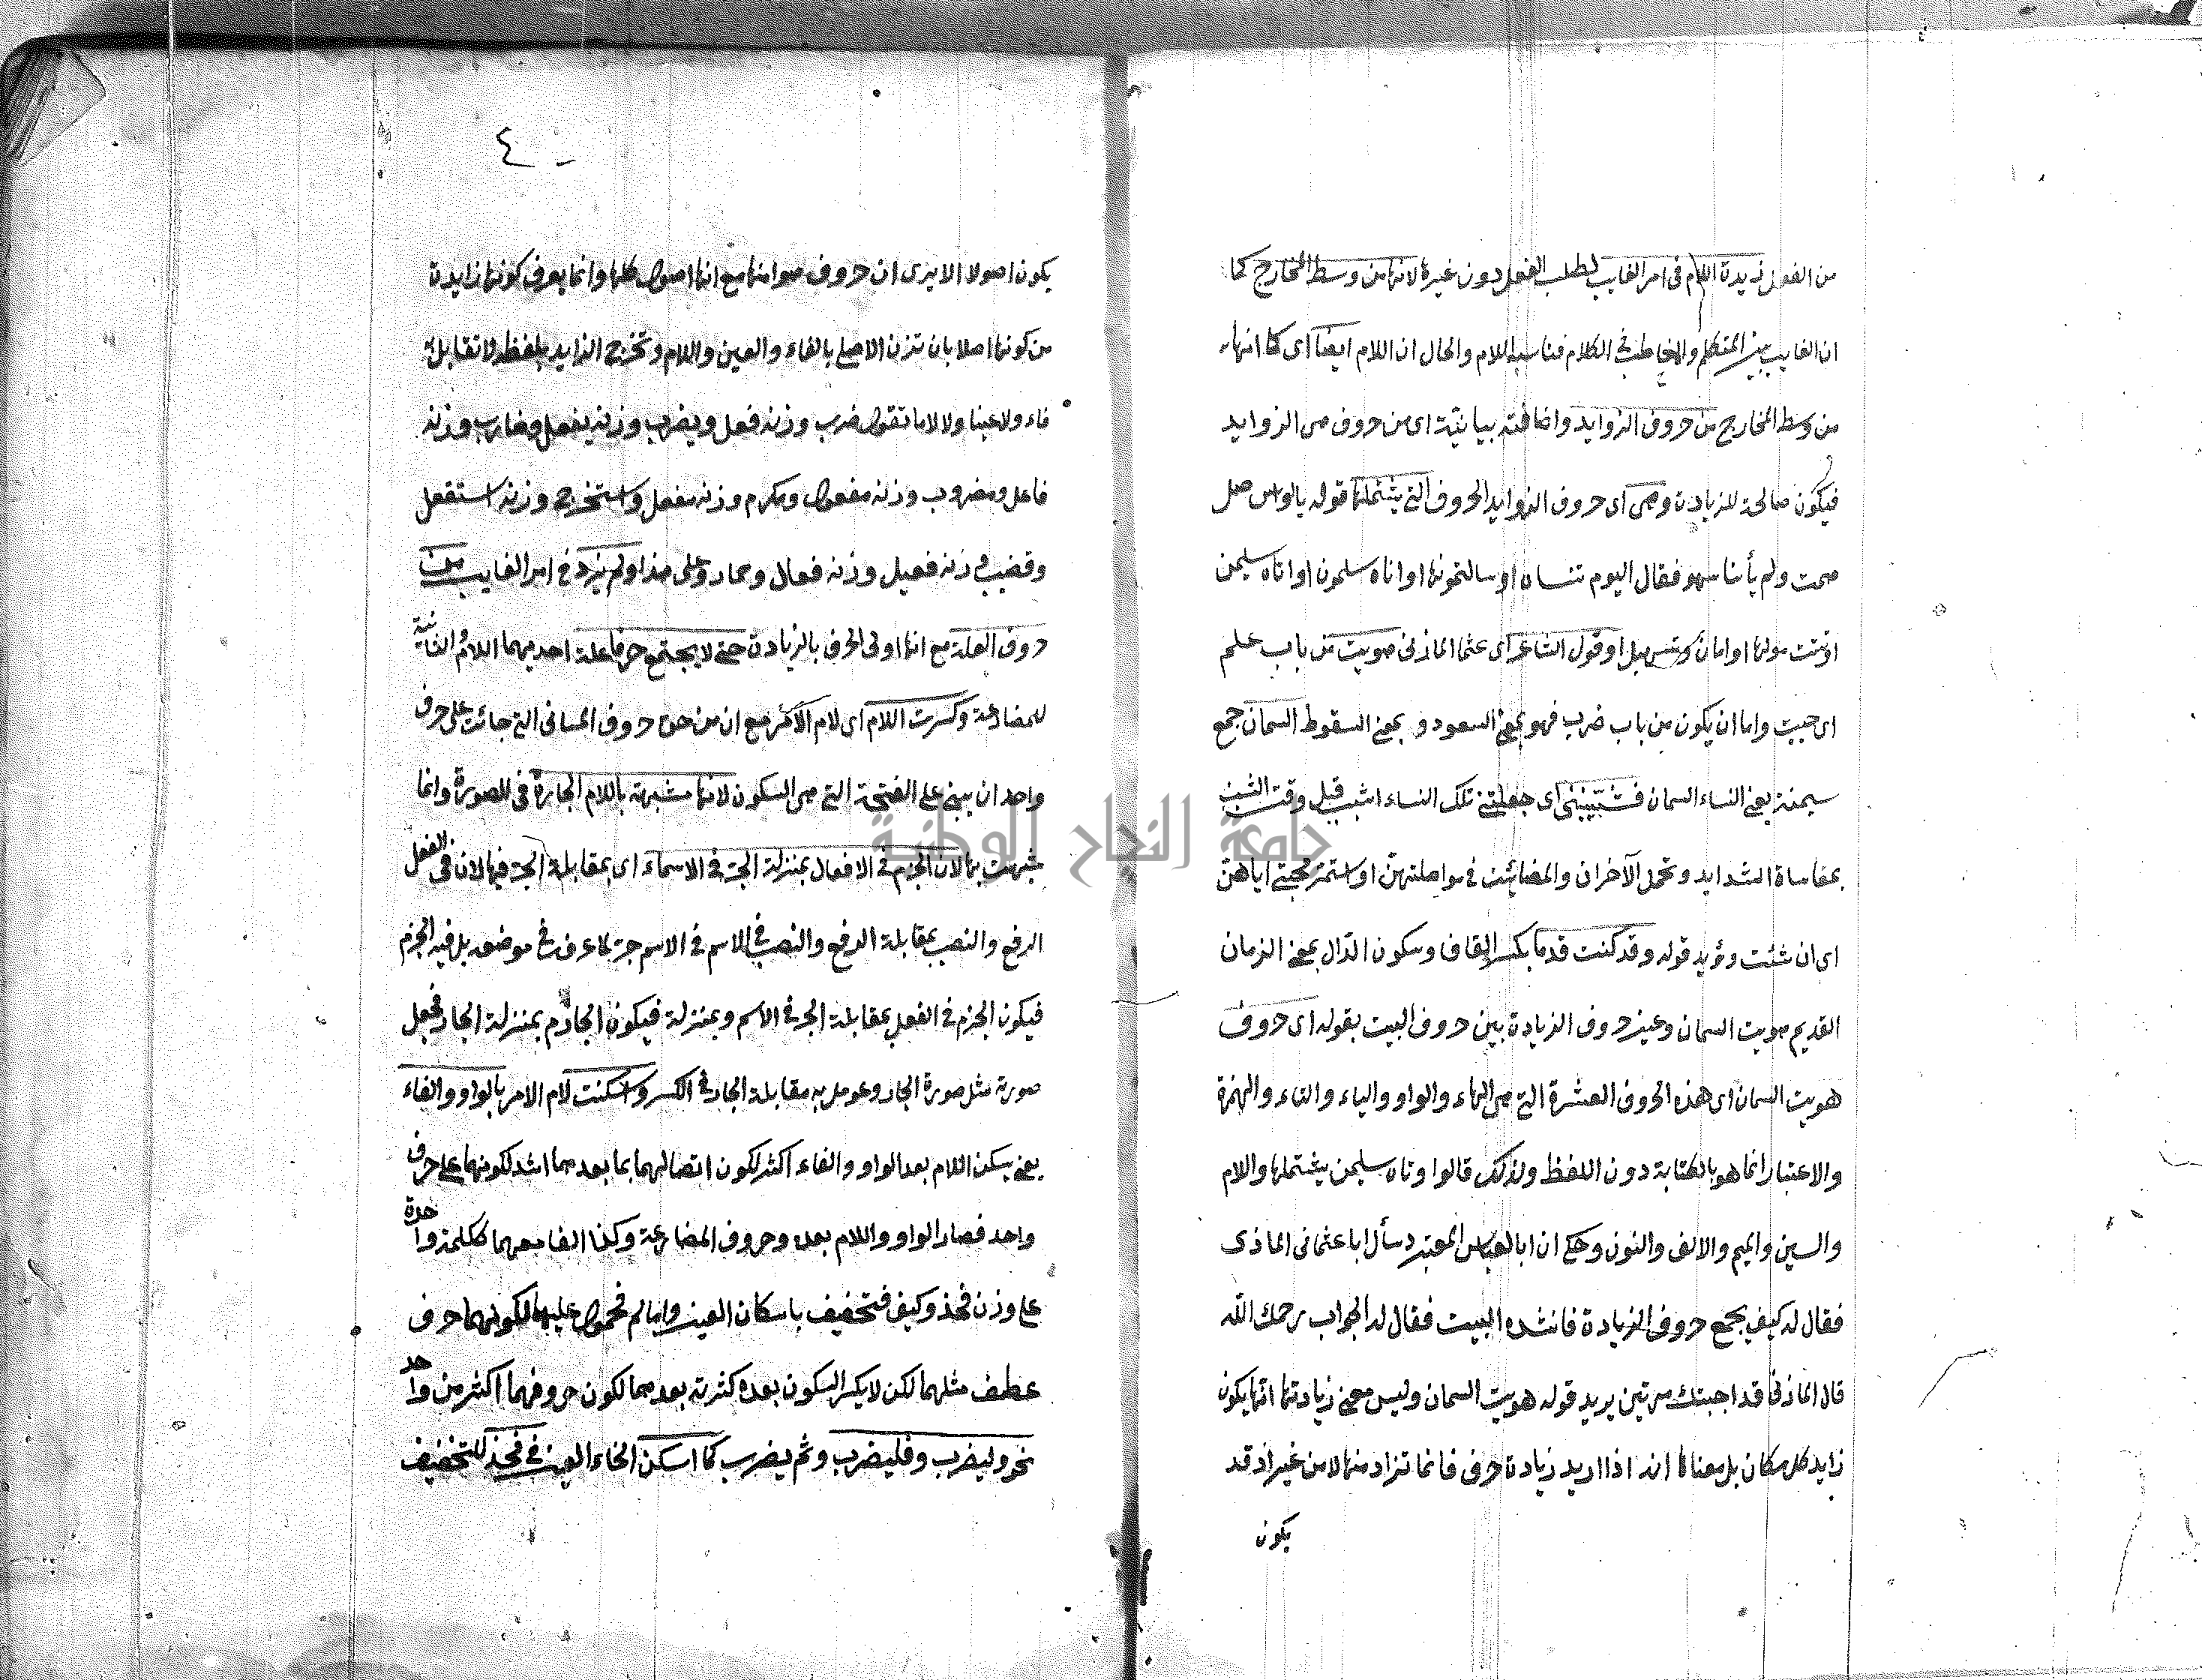 من الفعل زيدة اللام فى امر الغايب لطلب الفعل دون غيره لانها من وسط المخارج كما
ان الغايب بين المتكلم والمخاطب فى الكلام فناسبه اللام والحال ان اللام ايضا اى كما انها
من وسط المخارج من حروف الزوايد واضافته بيانيّة اى من حروف هى الزوايد
فيكون صالحة للزيادة وهى اى حروف الزوايد الحروف التى يشتملها قوله يا اوس هل
نمت ولم يأتنا سهو فقال اليوم تنساه او سالتمونها او اتاه سليمون او اتاه سليمن
او نمت سولها او امان وتسهيل او قول الشاعر اى عثما المازنى هويت من باب علم
اى حببت واما ان يكون من باب ضرب فهو بمعنى السعود و بمعنى السقوط السمان جمع
سمينة يعنى النساء السمان فشيّبننى اى جعلتنى تلك النساء اشيب قبل وقت الشيب
بمقاساة الشدايد وتحمل الآخران والمضائيت فى مواصلتهنّ او استمر محبتى اياهنّ
اى ان شئت ويؤيد قوله وقد كنت قدما بكسر القاف وسكون الدّال بمعنى الزمان
القديم هويت السمان وعين حروف الزيادة بين حروف البيت بقوله اى حروف
هويت السمان اى هذه الحروف العشرة التى هى الهاء والواو والياء والتاء والهمزة
والاعتبار انما هو بالكتابة دون اللفظ ولذلك قالوا وتاه سليمن يشتملها واللام
والسين والميم والالف والنون وحكى ان ابا العباس المعتبر دسأل ابا عثمانى الماذى
فقال له كيف يجمع حروف الزيادة فانشده البيت فقال له الجواب رحمك الله
قال المازنى قد اجبتك مرتين يريد قوله هويت السمان وليس معنى زيادتها انها يكون
زايد كل مكان بل معناه انه اذا اريد زيادة حرف فانما تزاد منها لا من غير اذ قد
يكون
٤
يكون اصولا الا يرى ان حروف هوامنها مع انها اصول كلها وانما يعرف كونها زايدة
من كونها اصلا بان تزن الاصلى بالفاء والعين واللام وتخرج الزايد بلفظه لا تقابل به
فاء ولا عينا ولا لاما تقول ضرب وزنه فعل ويضرب وزنه يفعل وضارب وزنه
فاعل ومضروب وزنه مفعول ومكرم وزنه مفعل واستخرج وزنه استفعل
وقضيب فى زنه فعيل وزنه فعال وحمار وعلى هذا ولم يزد فى امر الغايب من
حروف العلة مع انها اولى الحرف بالزيادة حتى لا يجتمع حرفا علة احديهما اللام والثانية
للمضارعة وكسرت اللام اى لام الامر مع ان من حق حروف المسانى التى جائت على حرف
واحد ان يبنى على الفتحة التى هى السكون لانها مشبهة باللام الجارة فى الصورة وانما
شبهت بها لان الجزم فى الافعال بمنزلة الجرّ فى الاسماء اى بمقابلة الجرّ فيها لان فى الفعل
الرفع والنصب بمقابلة الرفع والنصب فى الاسم فى الاسم جر كما عرف فى موضعه بل فيه الجزم
فيكون الجزم فى الفعل بمقابلة الجر فى الاسم وبمنزلة فيكون الجازم بمنزلة الجار فجعل
صورته مثل صورة الجار وعومل به مقابلة الجار فى الكسر واسكنت لام الامر بالواو والفاء
يعنى يسكن اللام بعد الواو والفاء اكثر لكون اتصالهما بما بعدهما اشد لكونهما على حرف
واحد فصار الواو واللام بعده وحروف المضارعة وكذا الفا معهما ككلمة واحدة
على وزن فخذ وكيف فتخفيف باسكان العين واما لم فحمول عليهما لكونهما حرف
عطف مثلهما لكن لا يكسر السكون بعده كثرته بعدهما لكون حروفهما اكثر من واحد
نحو وليضرب وفليضرب وثم ليضرب كما اسكن الخاء العين فى فخذ للتخفيف
جامعة النجاح الوطنية